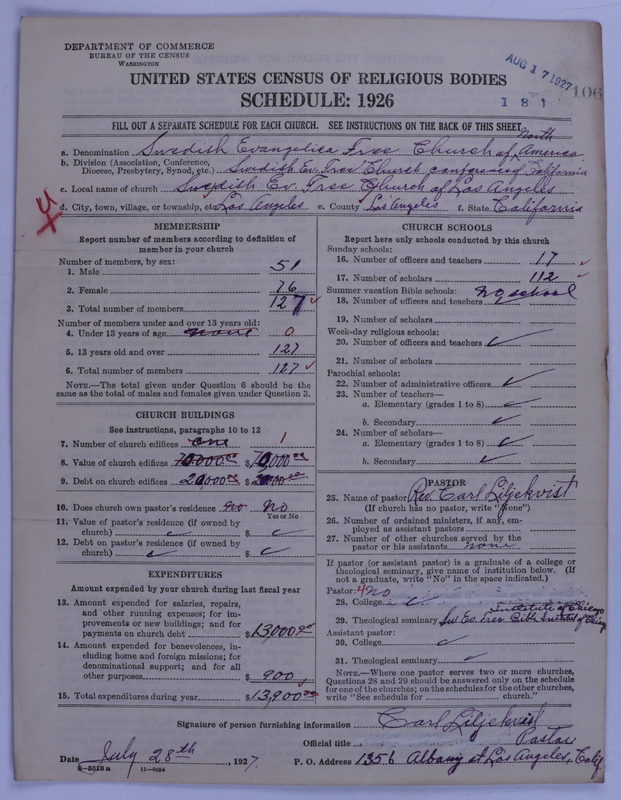 DEPARTMENT OF COMMERCE
BUREAU OF THE CENSUS
WASHINGTON
AUG 17 1927
181
106
UNITED STATES CENSUS OF RELIGIOUS BODIES
SCHEDULE: 1926
FILL OUT A SEPARATE SCHEDULE FOR EACH CHURCH. SEE INSTRUCTIONS ON THE BACK OF THIS SHEET
North
a. Denomination Swedish Evangelica Free Church of America
b. Division (Association, Conference,
Diocese, Presbytery, Synod, etc.) Swedish Ev. Free Church conference of California
c. Local name of church Swedish Ev. Free Church of Los Angeles
d. City, town, village, or township, etc Los Angeles e. County Los Angeles f. State California
MEMBERSHIP
Report number of members according to definition of
member in your church
Number of members, by sex:
1. Male 51
2. Female 76
3. Total number of members 127
Number of members under and over 13 years old:
4. Under 13 years of age none 0
5. 13 years old and over 127
6. Total number of members 127
NOTE.—The total given under Question 6 should be the
same as the total of males and females given under Question 3.
CHURCH BUILDINGS
See instructions, paragraphs 10 to 12
7. Number of church edifices one 1
8. Value of church edifices 70000 00 $ 70,000 00
9. Debt on church edifices 20000 00 $
10. Does church own pastor's residence no No
Yes or No
11. Value of pastor's residence (if owned by
church) $
12. Debt on pastor's residence (if owned by
church) $
EXPENDITURES
Amount expended by your church during last fiscal year
13. Amount expended for salaries, repairs,
and other running expenses; for im-
provements or new buildings; and for
payments on church debt $ 13000 00
14. Amount expended for benevolences, in-
cluding home and foreign missions; for
denominational support; and for all
other purposes $ 900
15. Total expenditures during year $ 13,900 00
CHURCH SCHOOLS
Report here only schools conducted by this church
Sunday schools:
16. Number of officers and teachers 17
17. Number of scholars 112
Summer vacation Bible schools: no school
18. Number of officers and teachers
19. Number of scholars
Week-day religious schools:
20. Number of officers and teachers
21. Number of scholars
Parochial schools:
22. Number of administrative officers
23. Number of teachers—
a. Elementary (grades 1 to 8)
b. Secondary
24. Number of scholars—
a. Elementary (grades 1 to 8)
b. Secondary
PASTOR
25. Name of pastor Rev. Carl Liljekvist
(If church has no pastor, write "None")
26. Number of ordained ministers, if any, em-
ployed as assistant pastors
27. Number of other churches served by the
pastor or his assistants none
If pastor (or assistant pastor) is a graduate of a college or
theological seminary, give name of institution below. (If
not a graduate, write "No" in the space indicated.)
Pastor: 4 no
28. College
Institute of Chicago
29. Theological seminary Sw Ev. Free Bible Institute of Chicago
Assistant pastor:
30. College
31. Theological seminary
NOTE.—Where one pastor serves two or more churches,
Questions 28 and 29 should be answered only on the schedule
for one of the churches; on the schedules for the other churches,
write "See schedule for church."
Signature of person furnishing information Carl Liljekvist
Official title Pastor
Date July 28th, 1927. P. O. Address 1356 Albany st Los Angeles, Calif
8—5518a 11—8084